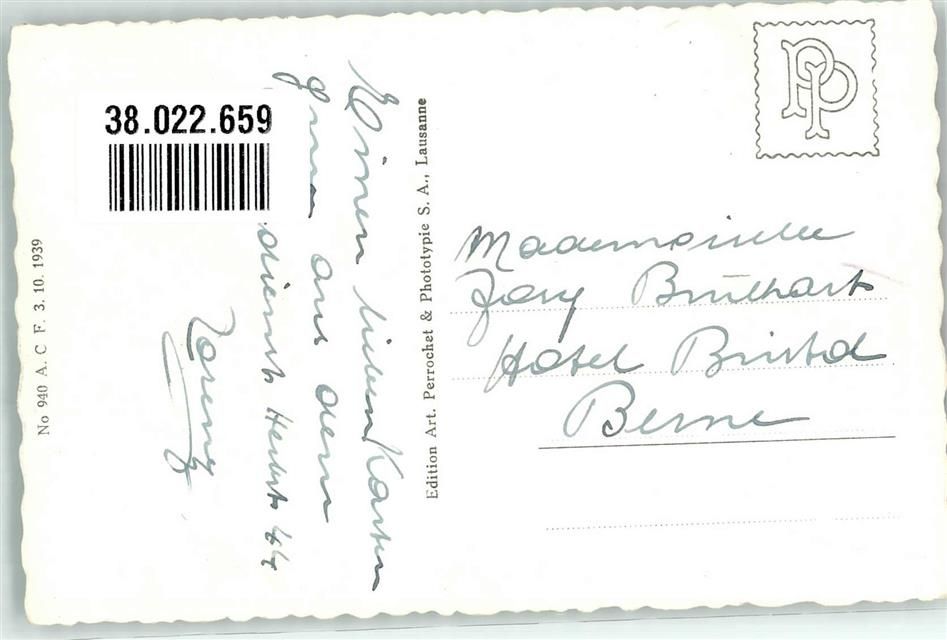 38.022.659
Einen lieben Karten
gruss aus dem
dienst Herbst 44
Lorenz
No 940 A. C F. 3. 10. 1939
Edition Art. Perrochet & Phototypie S. A., Lausanne
PP
Mademoiselle
Josy Brülhart
Hotel Bristol
Berne